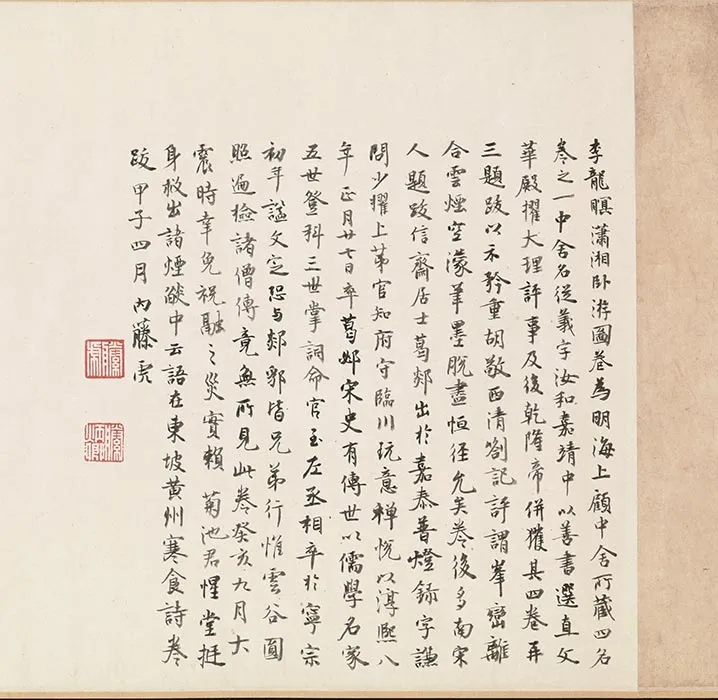 李龍瞑瀟湘臥游圖卷為明海上顧中舍所藏四名
卷之一中舍名從義字汝和嘉靖中以善書選直文
華殿擢大理評事及後乾隆帝併獲其四卷再
三題跋以示矜重胡敬西清劄記評謂峯巒離
合雲煙空濛筆墨脫盡恒徑允矣卷後多南宋
人題跋信齋居士葛郯出於嘉泰普燈錄字謙
問少擢上第官知府守臨川玩意禪悅以淳熙八
年正月廿七日卒葛邲宋史有傳世以儒學名家
五世登科三世掌詞命官至左丞相卒於寧宗
初年諡文定恐与郯皆兄弟行惟雲谷圓
照遍檢諸僧傳竟無所見此卷癸亥九月大
震時幸免祝融之災實賴 菊池君惺堂挺
身救出諸煙燄中云語在東坡黃州寒食詩卷
跋甲子四月內藤虎